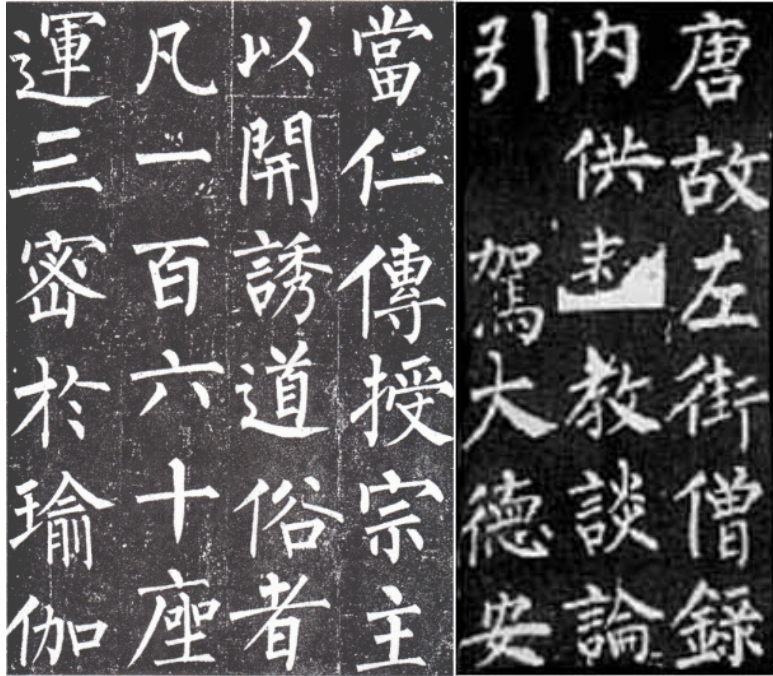 唐故左街僧錄
内供教談論
引駕大德安
當仁傳授宗主
以開誘道俗者
凡一百六十座
運三密於瑜伽